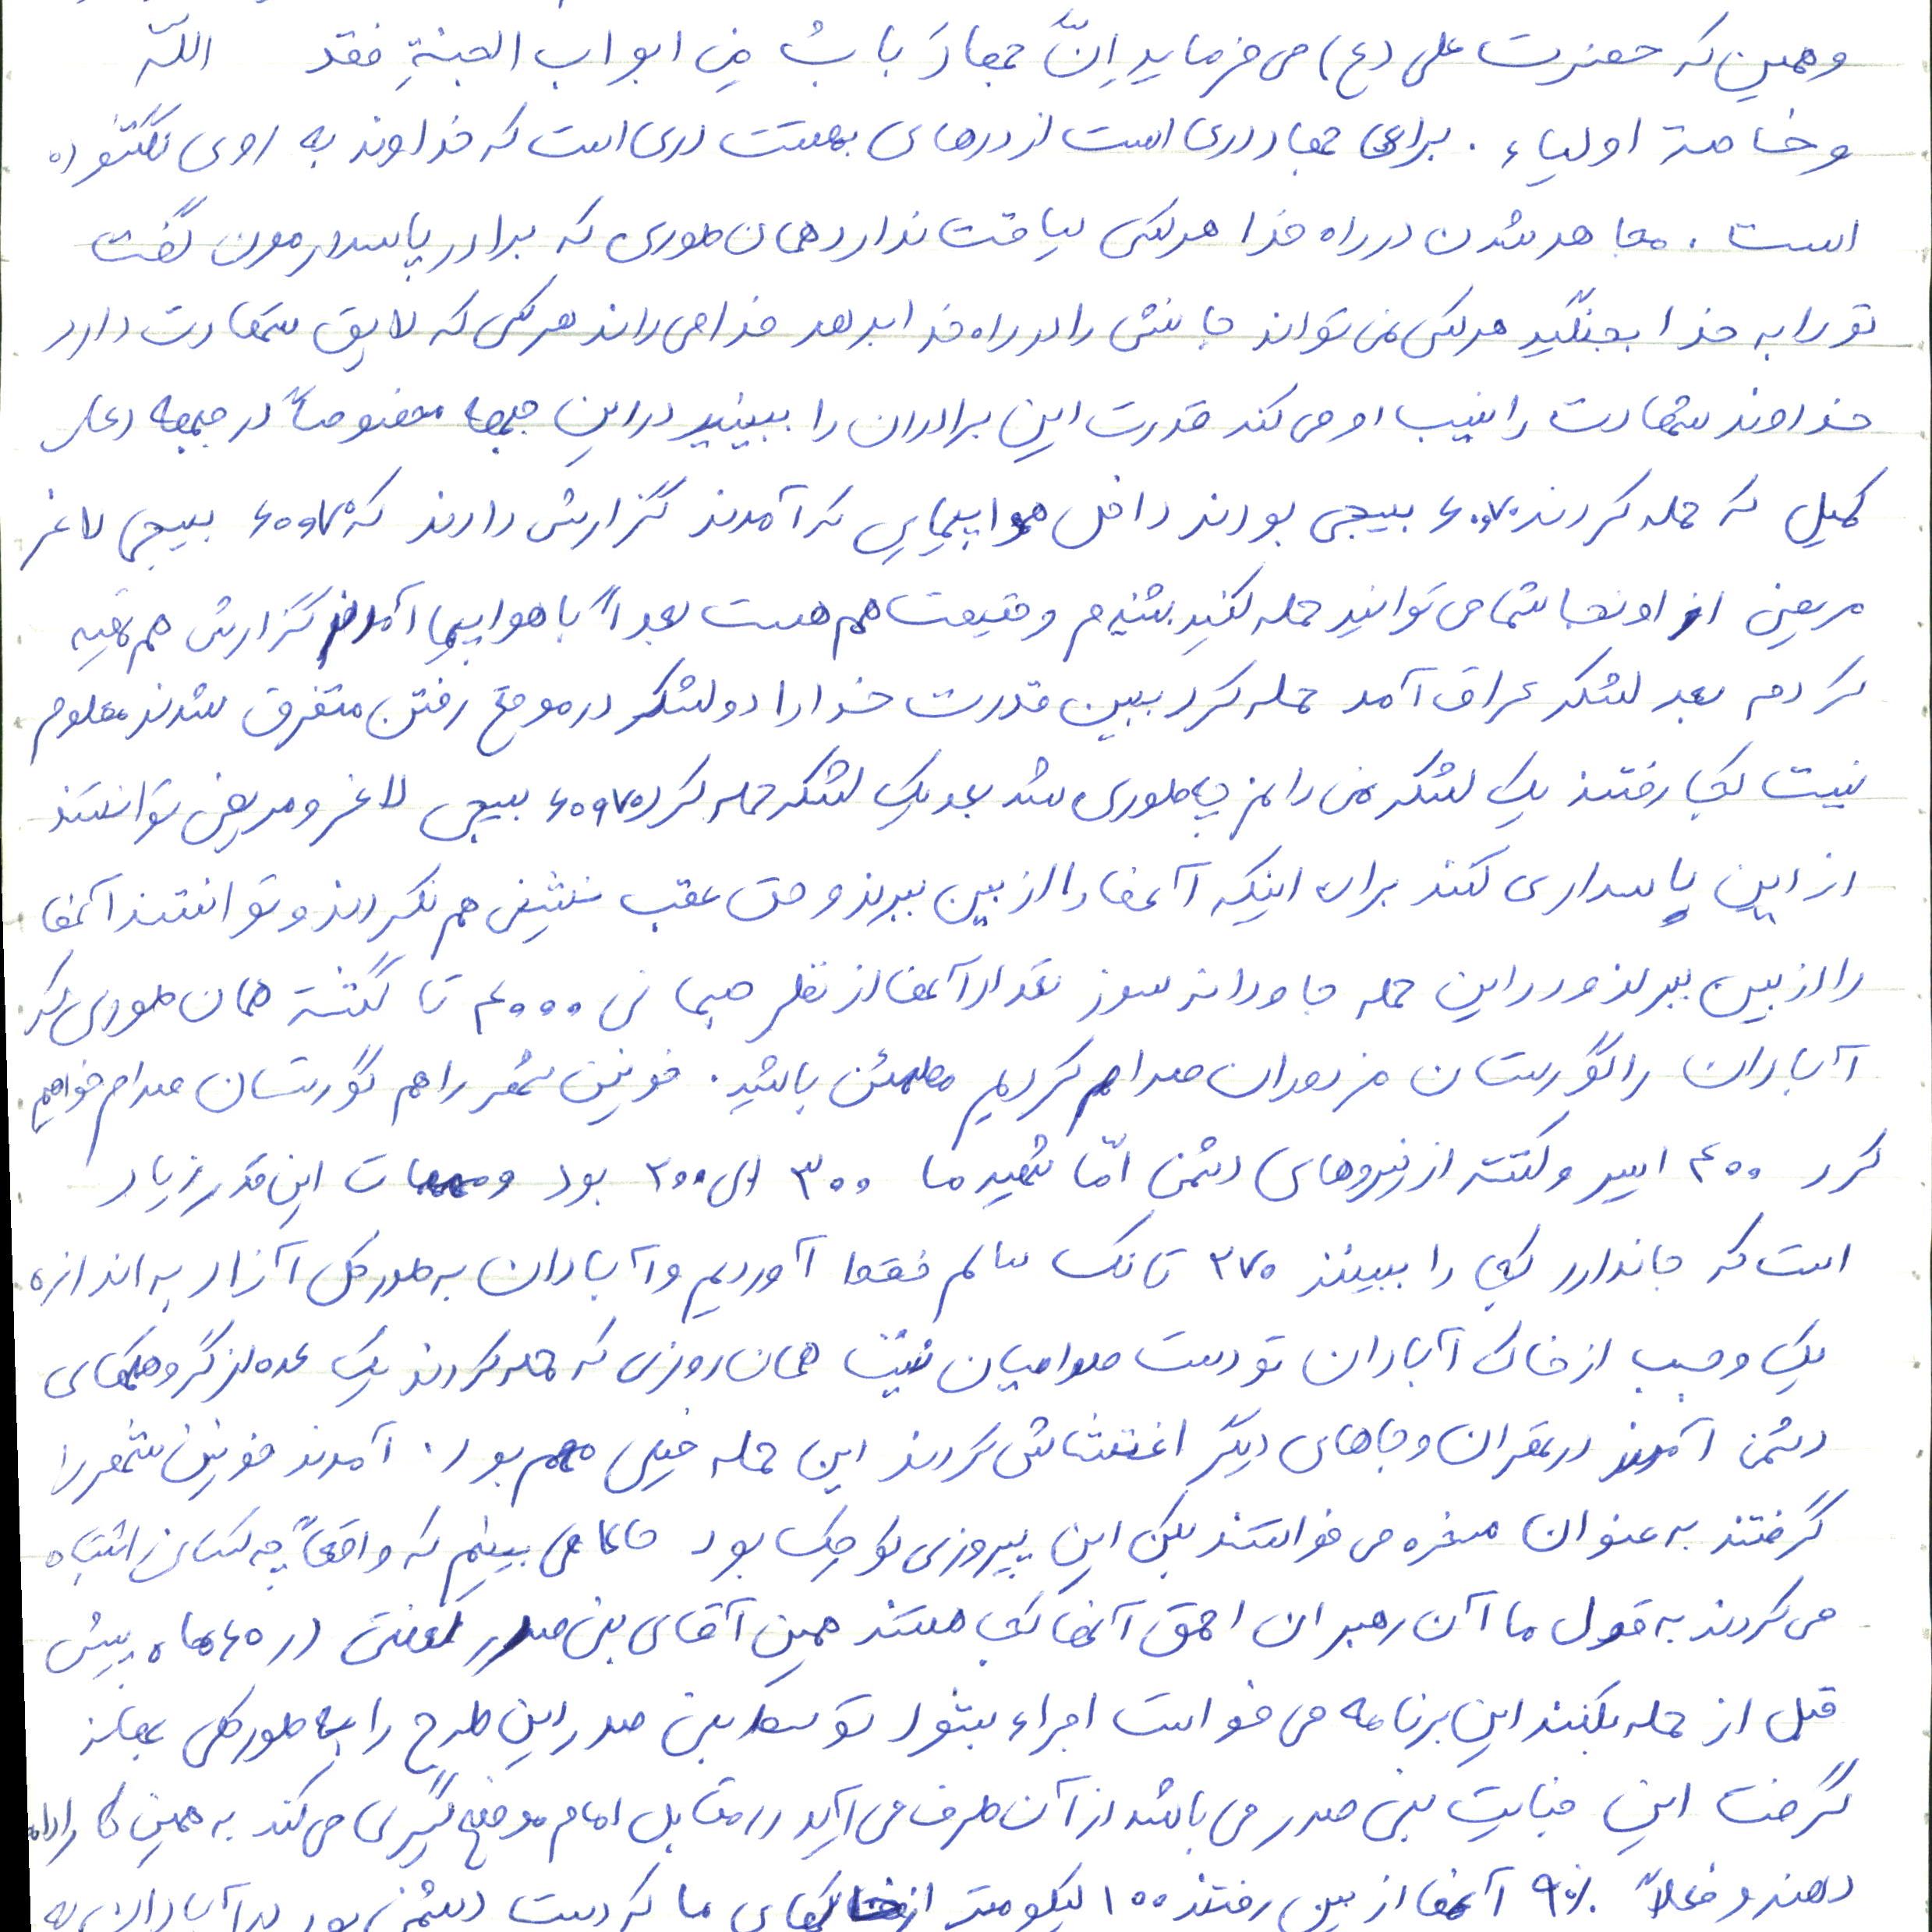 وهمین که حضرت علی (ع) می فرماید اِنَّ جهادَ بابُ مِن ابواب الجنةِ فقد اللّه
وخاصة اولیاء . براهی جهاد دری است از درهای بهشت دری است که خداوند به روی نگشوده
است . مجاهد شدن در راه خدا هرکسی لیاقت ندارد همان طوری که برادر پاسدارمون گفت
تو را به خدا بجنگید هرکسی نمی تواند جانش را در راه خدا بدهد خدا می داند هرکسی که لایق شهادت دارد
خداوند شهادت را نصیب او می کند قدرت این برادران را ببینید در این جبهه مخصوصاً در جبهه دعای
کمیل که حمله کردند ۶۰،۷۰ بسیجی بودند داخل هواپیمایی که آمدند گزارش دادند که ۶۰،۷۰ بسیجی لاغر
مریض از اونها شما می توانید حمله کنید بشنیدم وقیقت هم هست بعداً با هواپیما آمدند گزارش هم تهیه
کردم بعد لشکر عراق آمد حمله کرد ببین قدرت خدا را دو لشکر در موقع رفتن متفرق شدند معلوم
نیست کجا رفتند یک لشکر نمی دانم چطوری شد بعد یک لشکر حمله کرد ۶۰،۷۰ بسیجی لاغر و مریض توانستند
از این پاسداری کنند برای اینکه آنها را از بین ببرند و حتی عقب نشینی هم نکردند و توانستند آنها
را از بین ببرند و در این حمله جاودانه سوز تعداد آنها از نظر جسمانی ۴۰۰۰ تا کشته همان طوری که
آبادان را گورستان مزدوران صدام کردیم مطمئن باشید . خونین شهر را هم گورستان صدام خواهیم
کرد ۴۰۰ اسیر و کشته از نیروهای دشمن امّا شهید ما ۳۰۰ الی ۲۰۰ بود و مهمات این قدر زیاد
است که جا ندارد کجا را ببینند ۲۷۰ تانک سالم فقط آوردیم و آبادان به طور کل آزاد به اندازه
یک وجب از خاک آبادان تو دست صدامیان نیست همان روزی که حمله کردند یک عده از گروهکهای
دشمن آمدند در تهران و جاهای دیگر اغتشاش کردند این حمله خیلی مهم بود . آمدند خونین شهر را
گرفتند به عنوان مسخره می خواستند بکن این پیروزی کوچک بود حالا می بینیم که واقعاً چه کسانی اشتباه
می کردند به قول ما آن رهبران احمق آنها کجا هستند همین آقای بنی صدر لعنتی در ۶۰ ماه پیش
قبل از حمله بکنند این برنامه می خواست اجراء بشود توسط بنی صدر این طرح را به طور کلی بجانز
گرفت این جنایت بنی صدر می باشد از آن طرف می آید در مقابل امام موضع گیری می کند به همین کار ادامه
دهند و فعلاً ۹۰٪ آنها از بین رفتند ۱۰۰ کیلومتر از خاکهای ما که دست دشمن بود